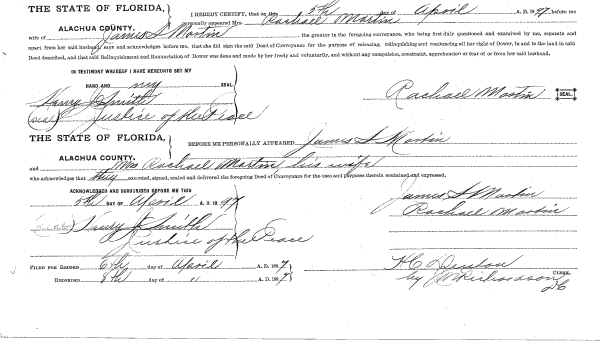 THE STATE OF FLORIDA, I HEREBY CERTIFY, that on this 5th day of April A. D. 1897 before me
ALACHUA COUNTY. personally appeared Mrs. Rachael Martin
wife of James S Martin the grantor in the foregoing conveyance, who being first duly questioned and examined by me, separate and
apart from her said husband, says and acknowledges before me, that she did sign the said Deed of Conveyance for the purpose of releasing, relinquishing and renouncing all her right of Dower, in and to the land in said
Deed described, and that said Relinquishment and Renunciation of Dower was done and made by her freely and voluntarily, and without any compulsion, constraint, apprehension or fear of or from her said husband.
IN TESTIMONY WHEREOF I HAVE HEREUNTO SET MY
HAND AND my SEAL Rachael Martin SEAL.
Henry Smith
(seal) Justice of the Peace
THE STATE OF FLORIDA, BEFORE ME PERSONALLY APPEARED James S Martin
ALACHUA COUNTY.
and Mrs Rachael Martin, his wife
who acknowledges that they executed, signed, sealed and delivered the foregoing Deed of Conveyance for the uses and purposes therein contained and expressed.
ACKNOWLEDGED AND SUBSCRIBED BEFORE ME THIS
5th DAY OF April A. D. 1897 James S Martin
Rachael Martin
Henry Smith
Justice of the Peace
FILED FOR RECORD 6th day of April A. D. 1897 H C Denton
RECORDED 8th day of " A. D. 1897 by Richardson CLERK.
DC